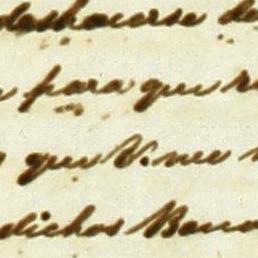 deshacerse de
para que r
que V. me
dichos Bono